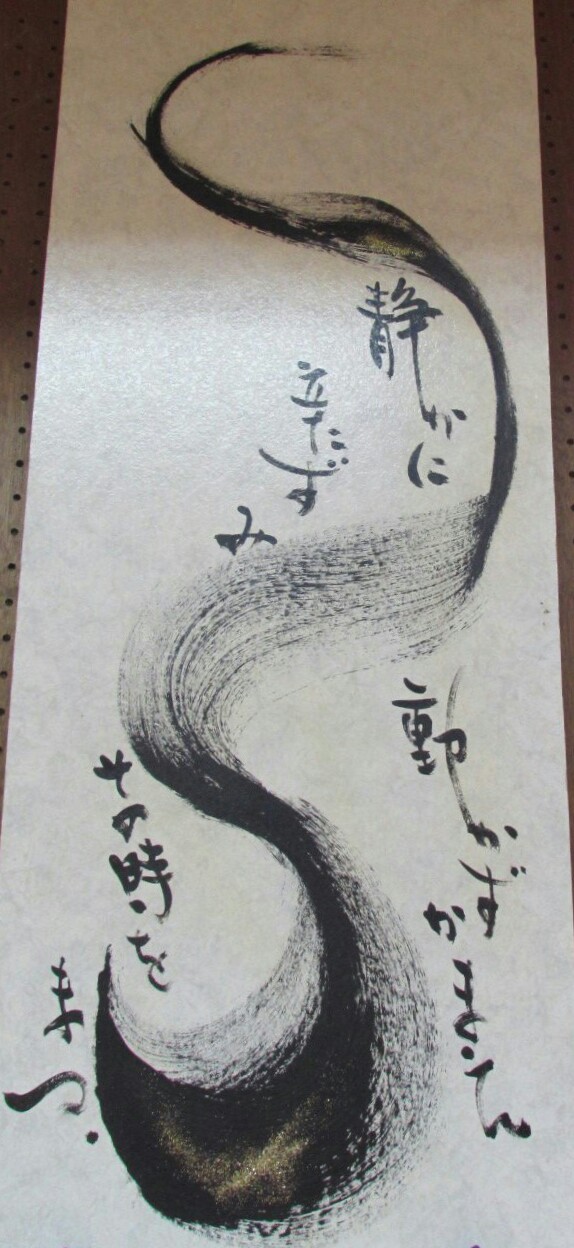 静かに
立たずみ
動かず
かまえて
その時を
まつ.